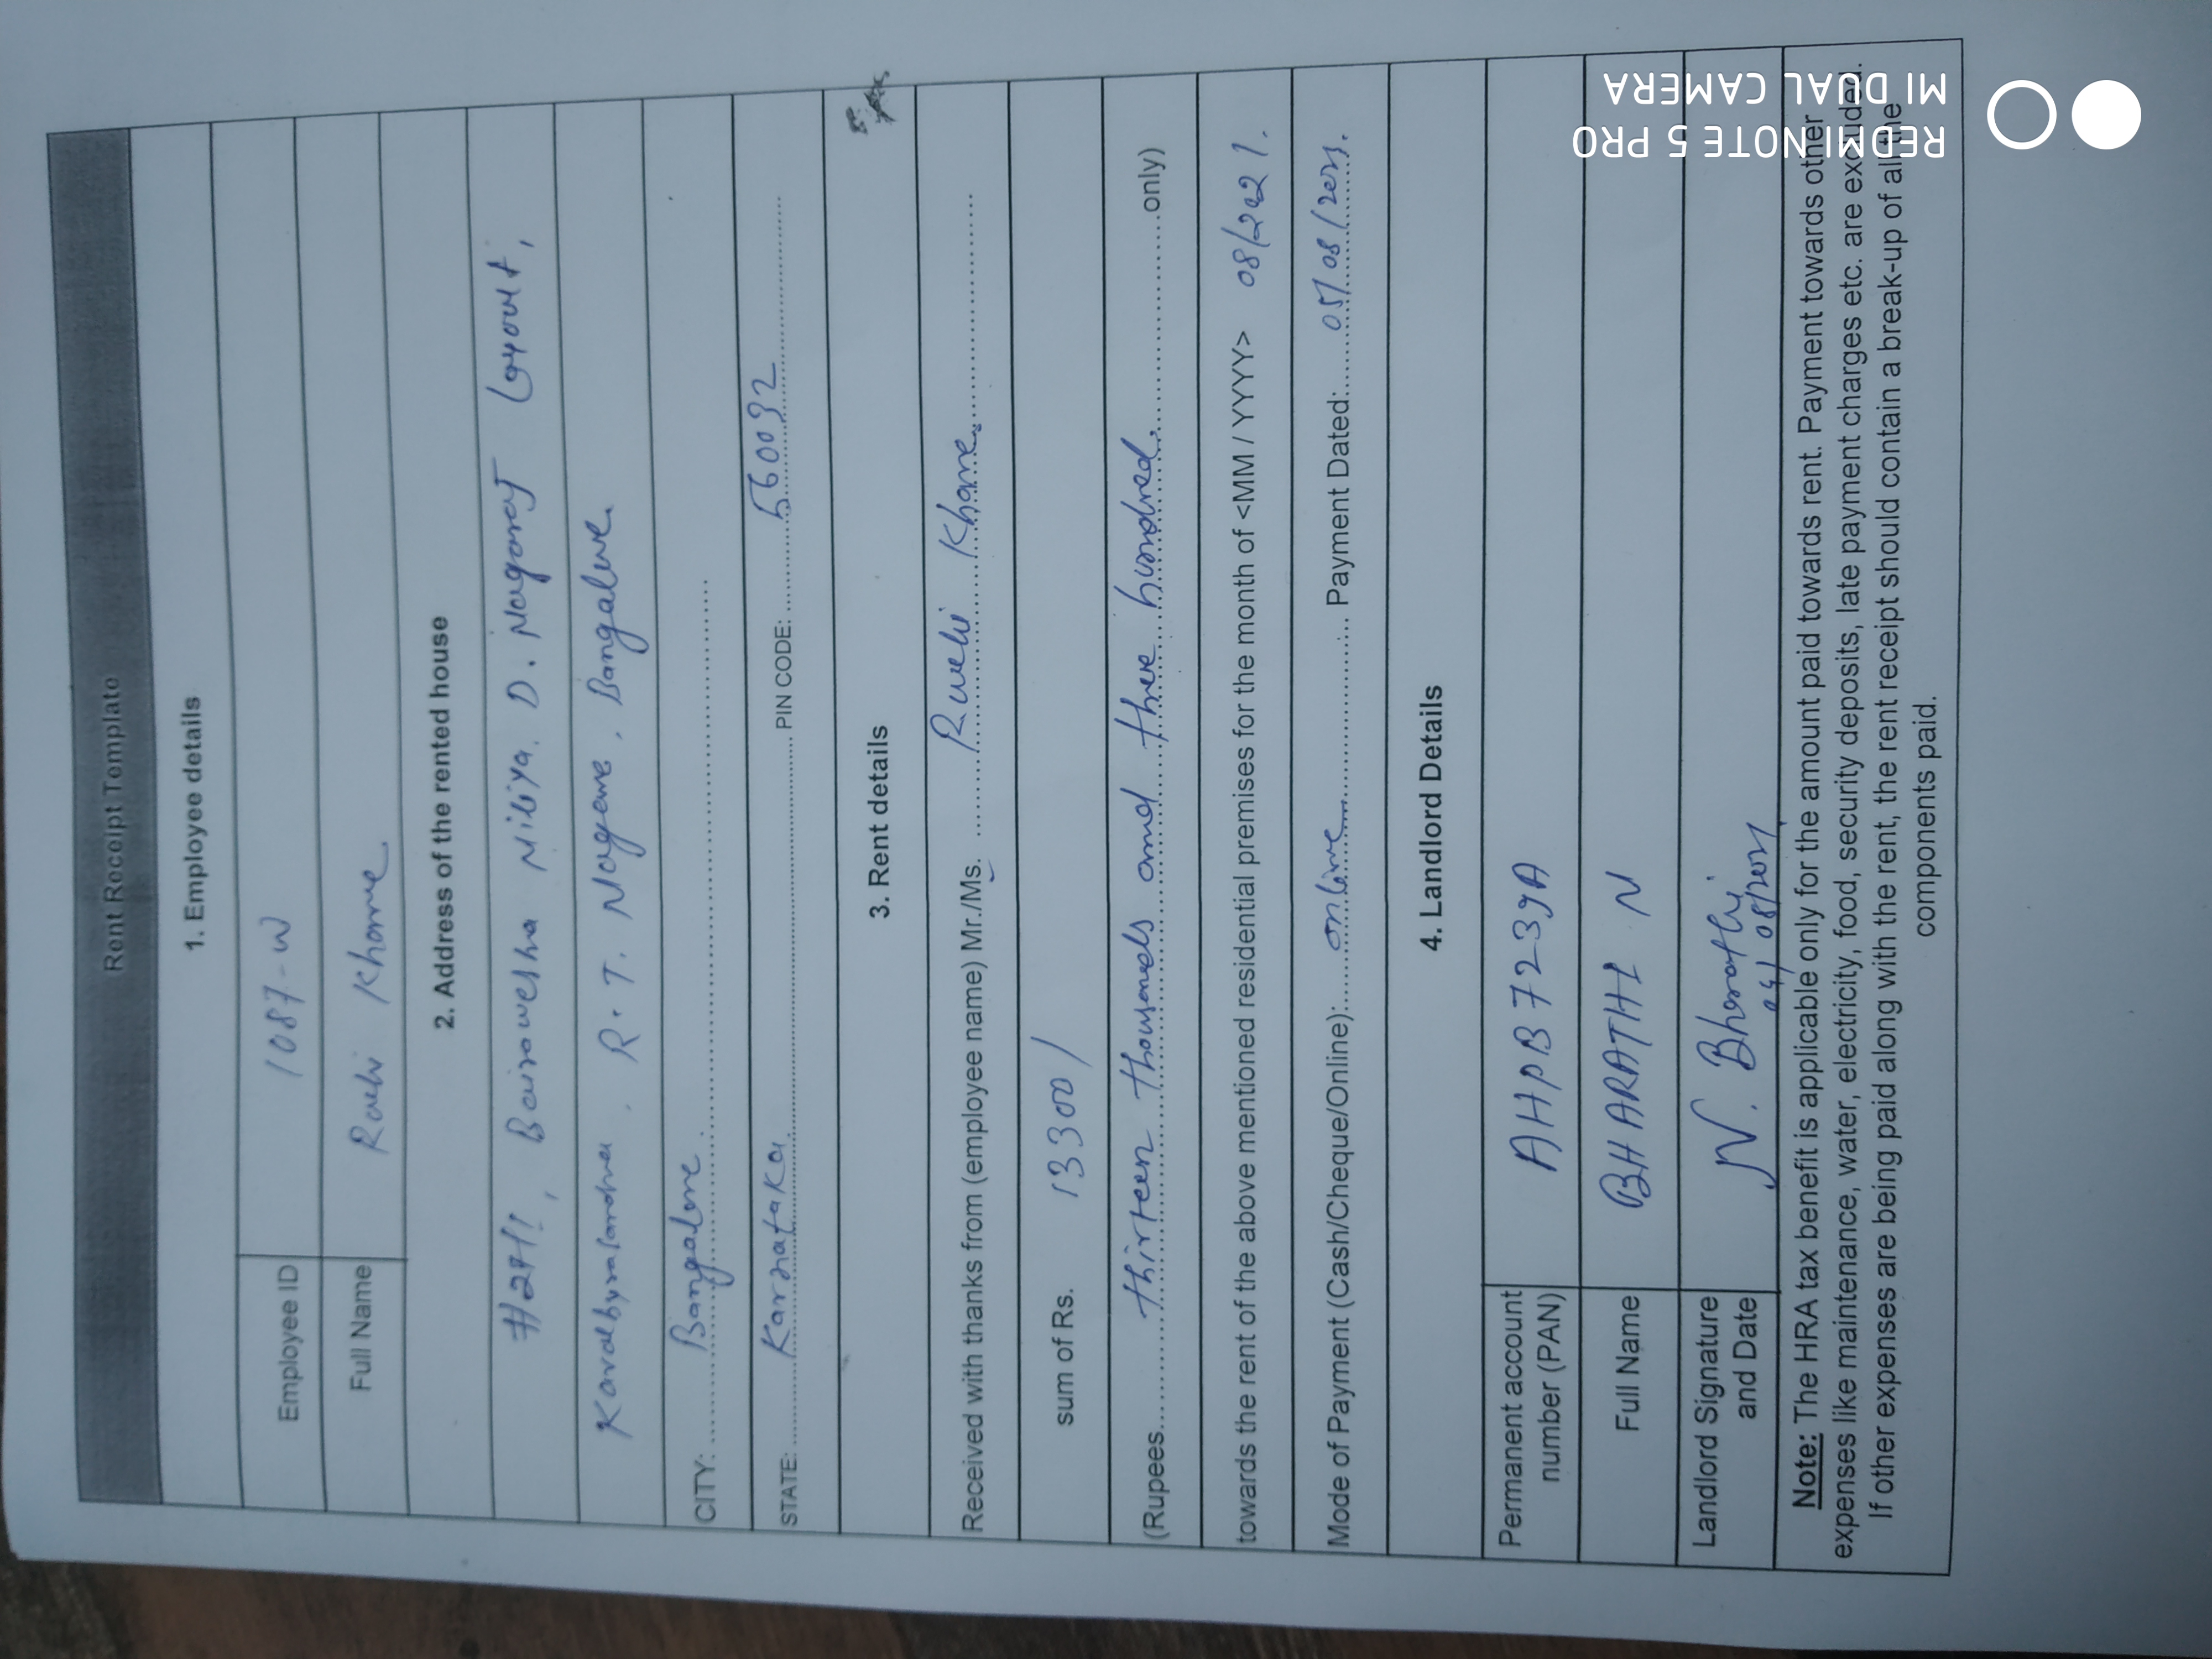 Rent Receipt Template
1. Employee details
Employee ID 1087-W
Full Name Ruhi Khame
2. Address of the rented house
#2411, Bairawesha Niliya, D. Nagaraj Layout,
R.T. Nagare, Bangalure
CITY: Bangalore
STATE: Karnataka PIN CODE: 560092
3. Rent details
Received with thanks from (employee name) Mr./Ms. Khame
sum of Rs. 13300/
(Rupees thirteen thousands and three hundred only)
towards the rent of the above mentioned residential premises for the month of <MM / YYYY> 08/2021.
Mode of Payment (Cash/Cheque/Online): online Payment Dated: 05/08/2021.
4. Landlord Details
Permanent account number (PAN) AHPB7239A
Full Name BHARATHI N
Landlord Signature and Date N. Bharathi
08/2021
Note: The HRA tax benefit is applicable only for the amount paid towards rent. Payment towards other
expenses like maintenance, water, electricity, food, security deposits, late payment charges etc. are excluded.
If other expenses are being paid along with the rent, the rent receipt should contain a break-up of all the
components paid.
REDMI NOTE 5 PRO
MI DUAL CAMERA